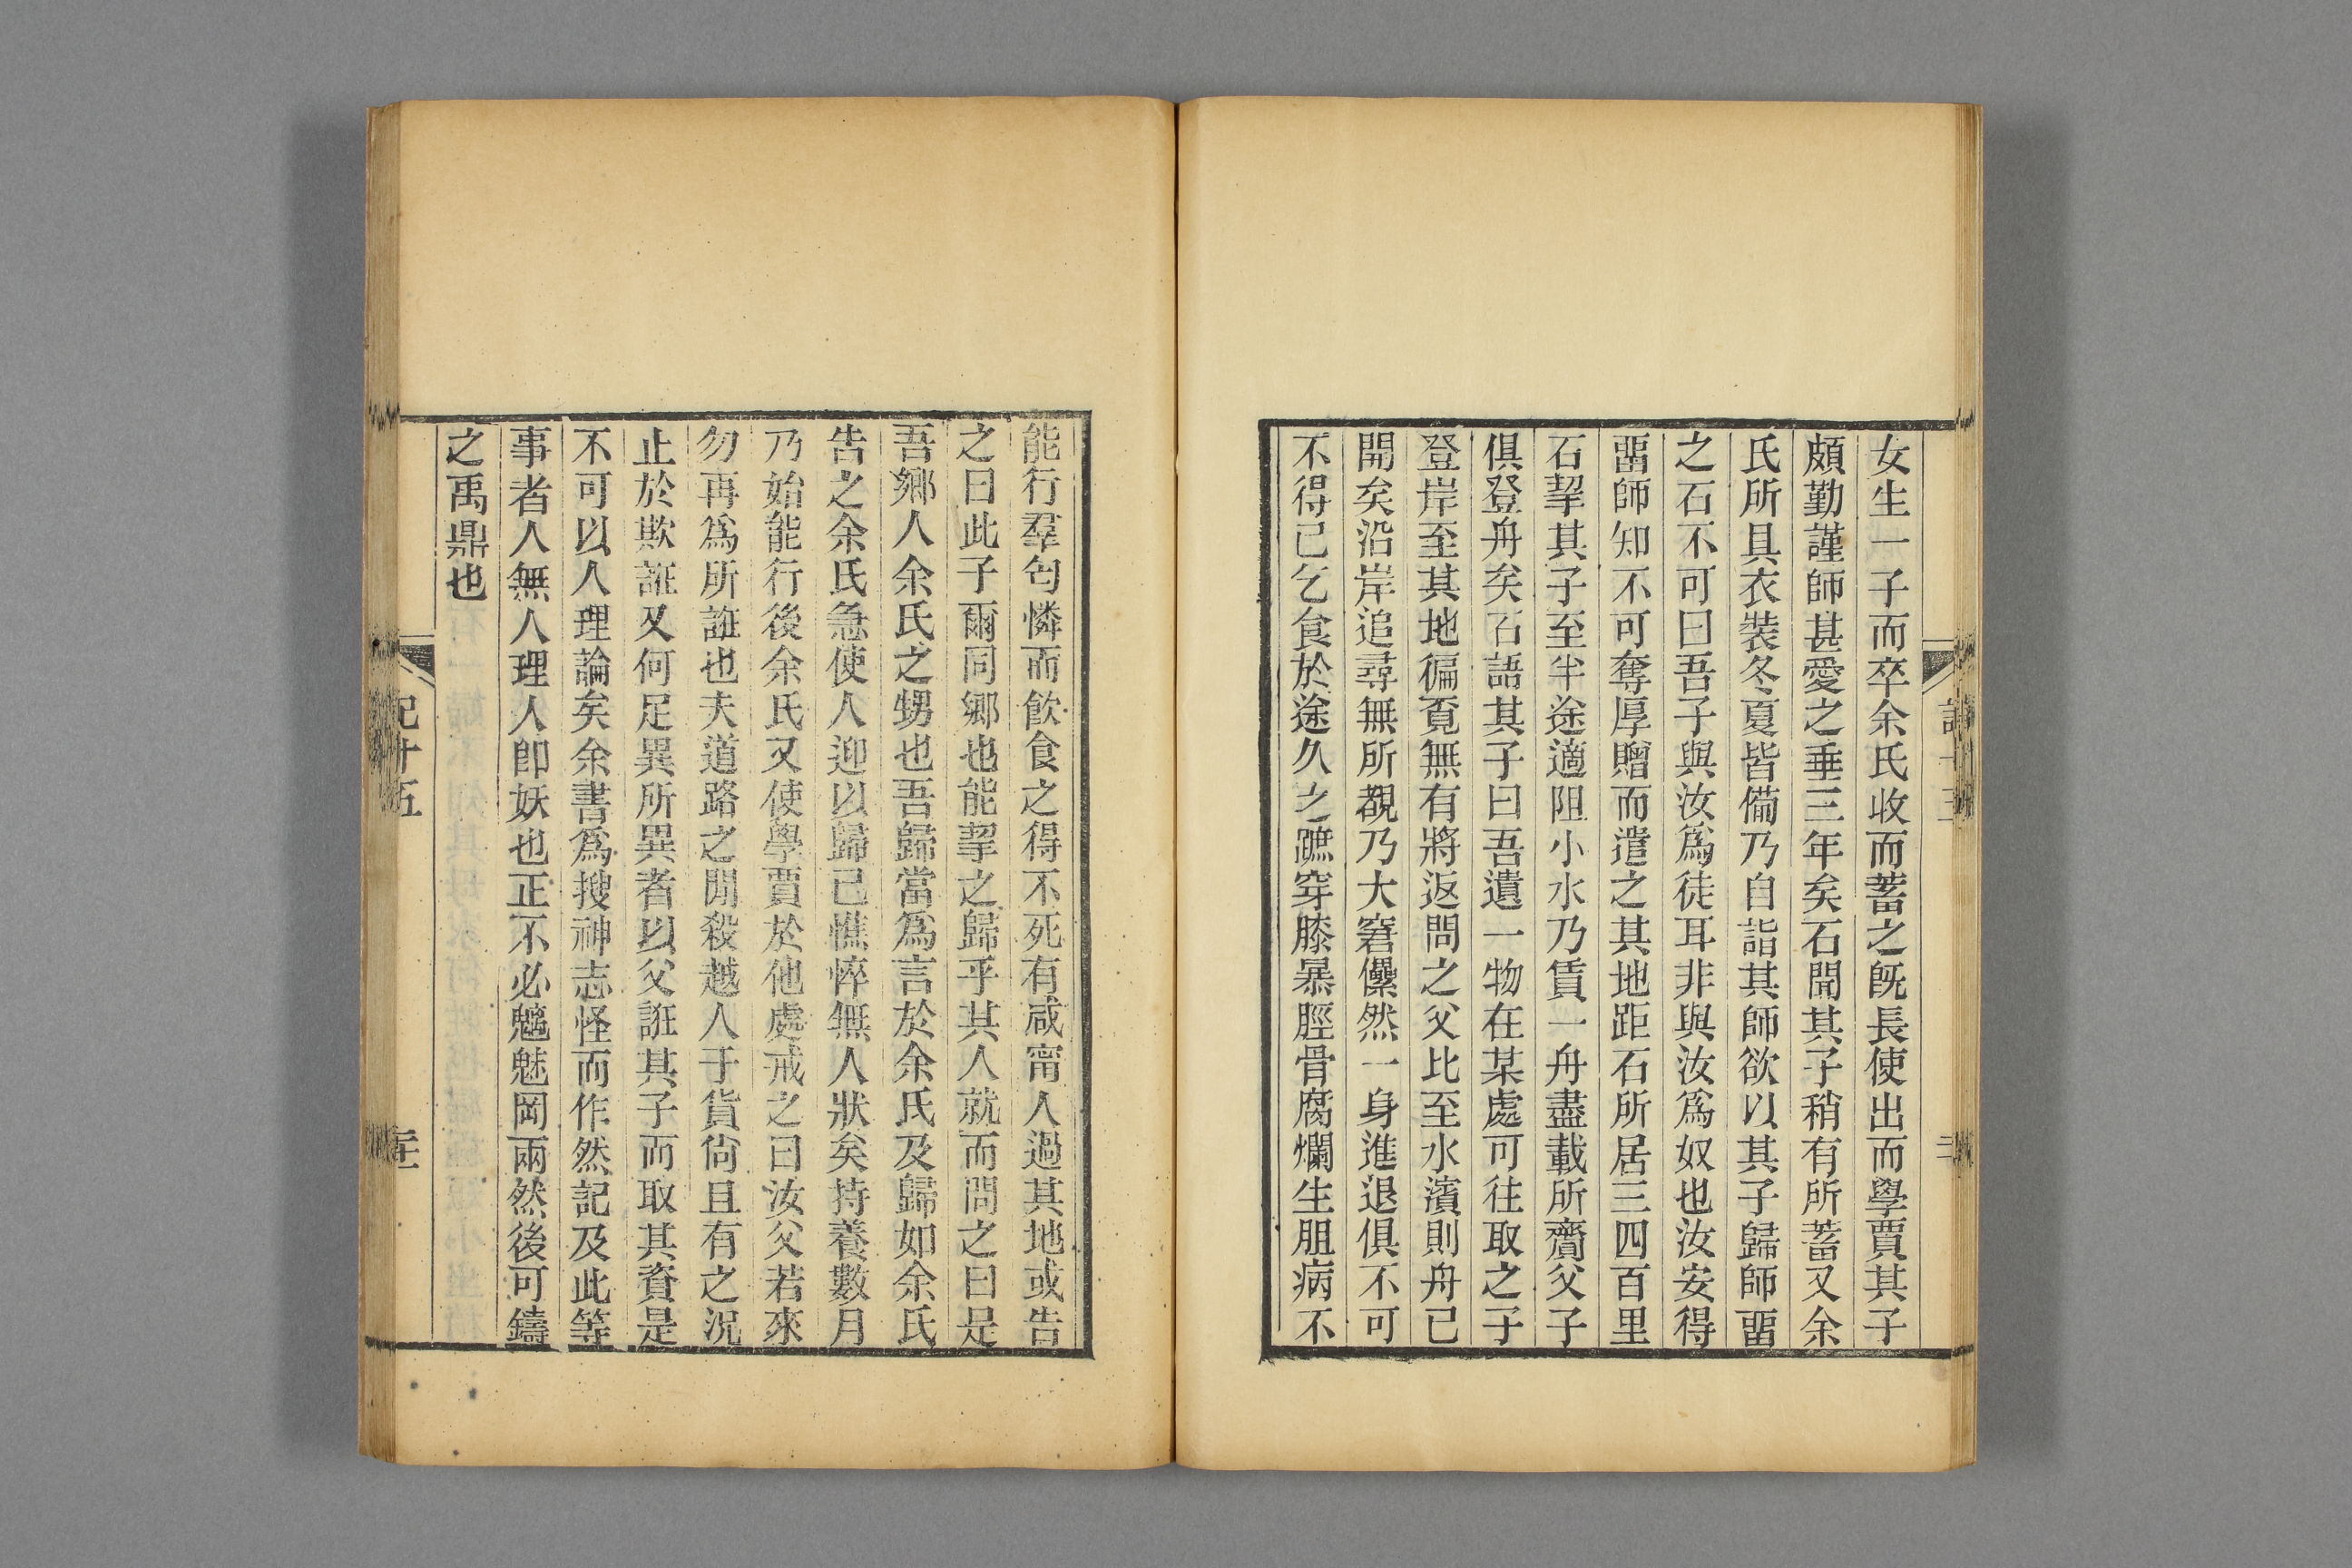 女生一子而卒余氏收而蓄之旣長使出而學賈其子
頗勤謹師甚愛之垂三年矣石聞其子稍有所蓄又余
氏所具衣裝冬夏皆備乃自詣其師欲以其子歸師畱
之石不可曰吾子與汝爲徒耳非與汝爲奴也汝安得
畱師知不可奪厚贈而遣之其地距石所居三四百里
石挈其子至半途適阻小水乃賃一舟盡載所齎父子
俱登舟矣石語其子曰吾遺一物在某處可往取之子
登岸至其地徧覓無有將返問之父比至水濱則舟已
開矣沿岸追尋無所覩乃大窘儽然一身進退俱不可
不得已乞食於途久之蹠穿膝暴脛骨腐爛生胆病不
能行羣匄憐而飲食之得不死有咸甯人過其地或告
之曰此子爾同鄉也能挈之歸乎其人就而問之曰是
吾鄉人余氏之甥也吾歸當爲言於余氏及歸如余氏
告之余氏急使人迎以歸已憔悴無人狀矣持養數月
乃始能行後余氏又使學賈於他處戒之曰汝父若來
勿再爲所誑也夫道路之閒殺越人于貨尙且有之況
止於欺誑又何足異所異者以父誑其子而取其資是
不可以人理論矣余書爲搜神志怪而作然記及此等
事者人無人理人卽妖也正不必魑魅罔兩然後可鑄
之禹鼎也
記十五